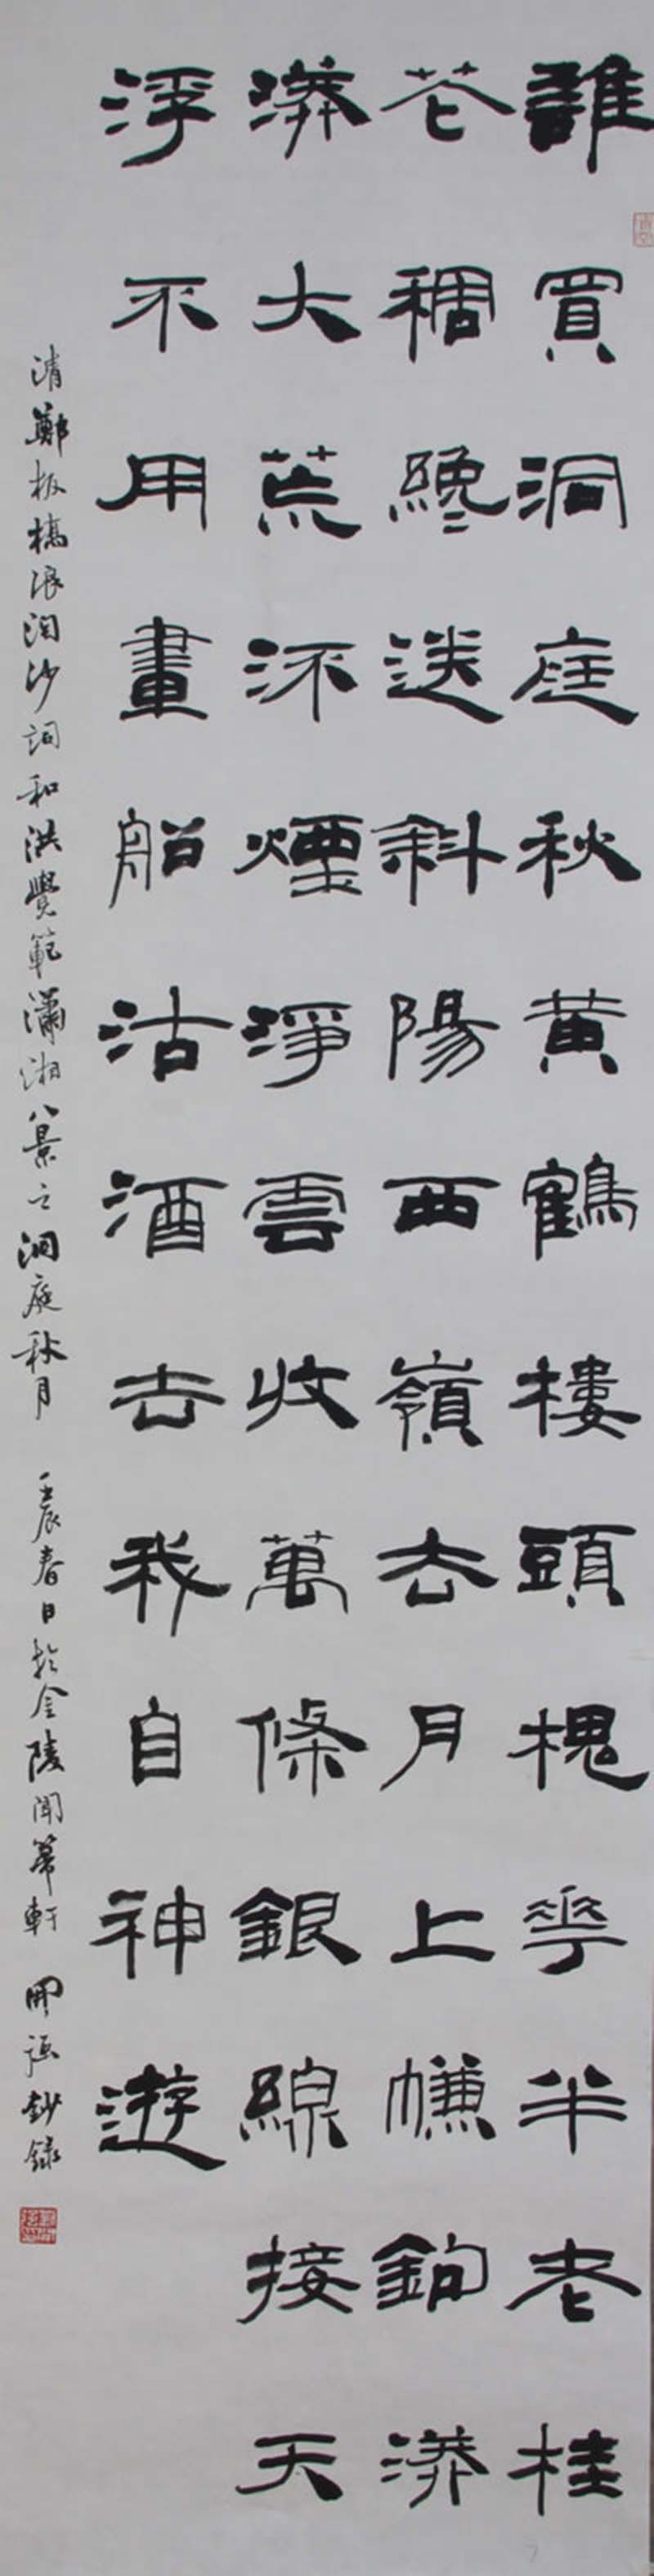 誰買洞庭秋黄鶴樓頭槐花半老桂
花稠纔送斜陽西嶺去月上幰鉤漭
漭大荒流煙淨雲收萬條銀線接天
浮不用畫船沽酒去我自神遊
清鄭板橋浪淘沙詞和洪覺範瀟湘八景之洞庭秋月 壬辰春日於金陵聞箏軒 開 鈔錄